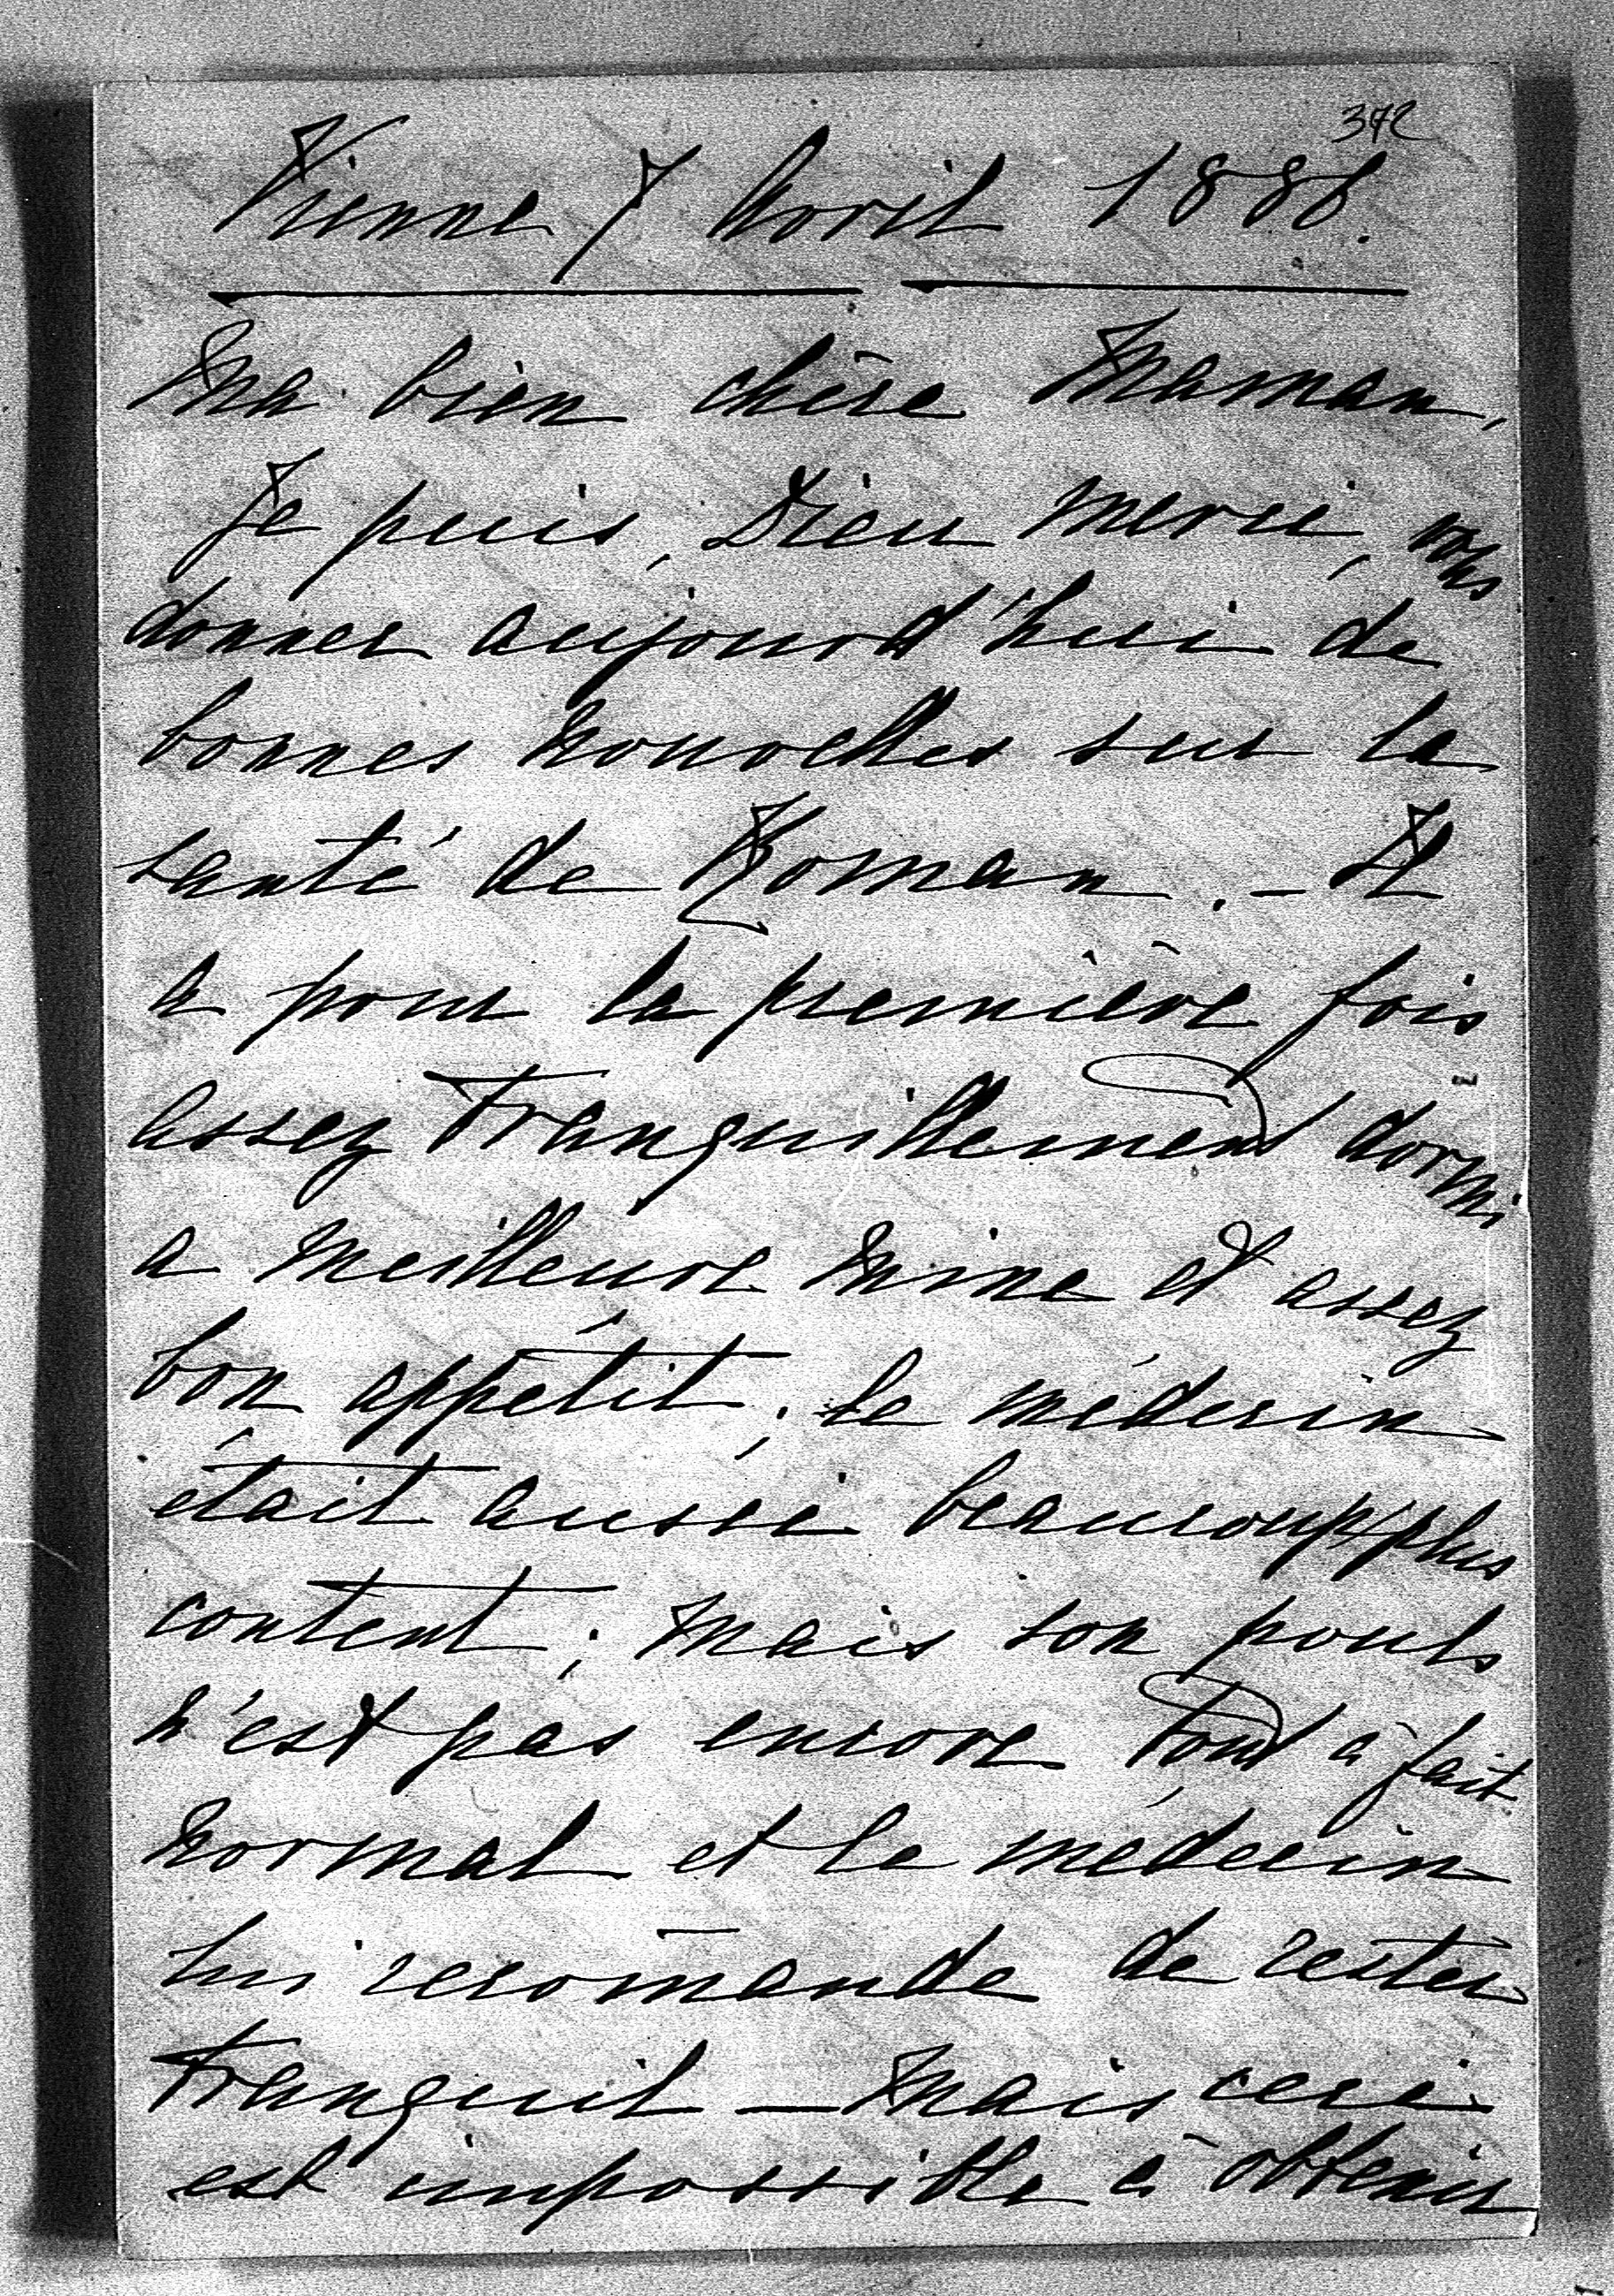 372
Vienne 7 Avril 1888.
Ma bien chère Maman,
Je puis, Dieu merci, vous
donner aujourd'hui de
bonnes nouvelles sur la
santé de Roman. – Il
a pour la première fois
assez tranquillement dormi
a meilleure mine et assez
bon appétit; le médecin
était aussi beaucoup plus
content; mais son pouls
n'est pas encore tout à fait
normal et le médecin
lui recom̄ande de rester
tranquil – mais ceci
est impossible à obtenir